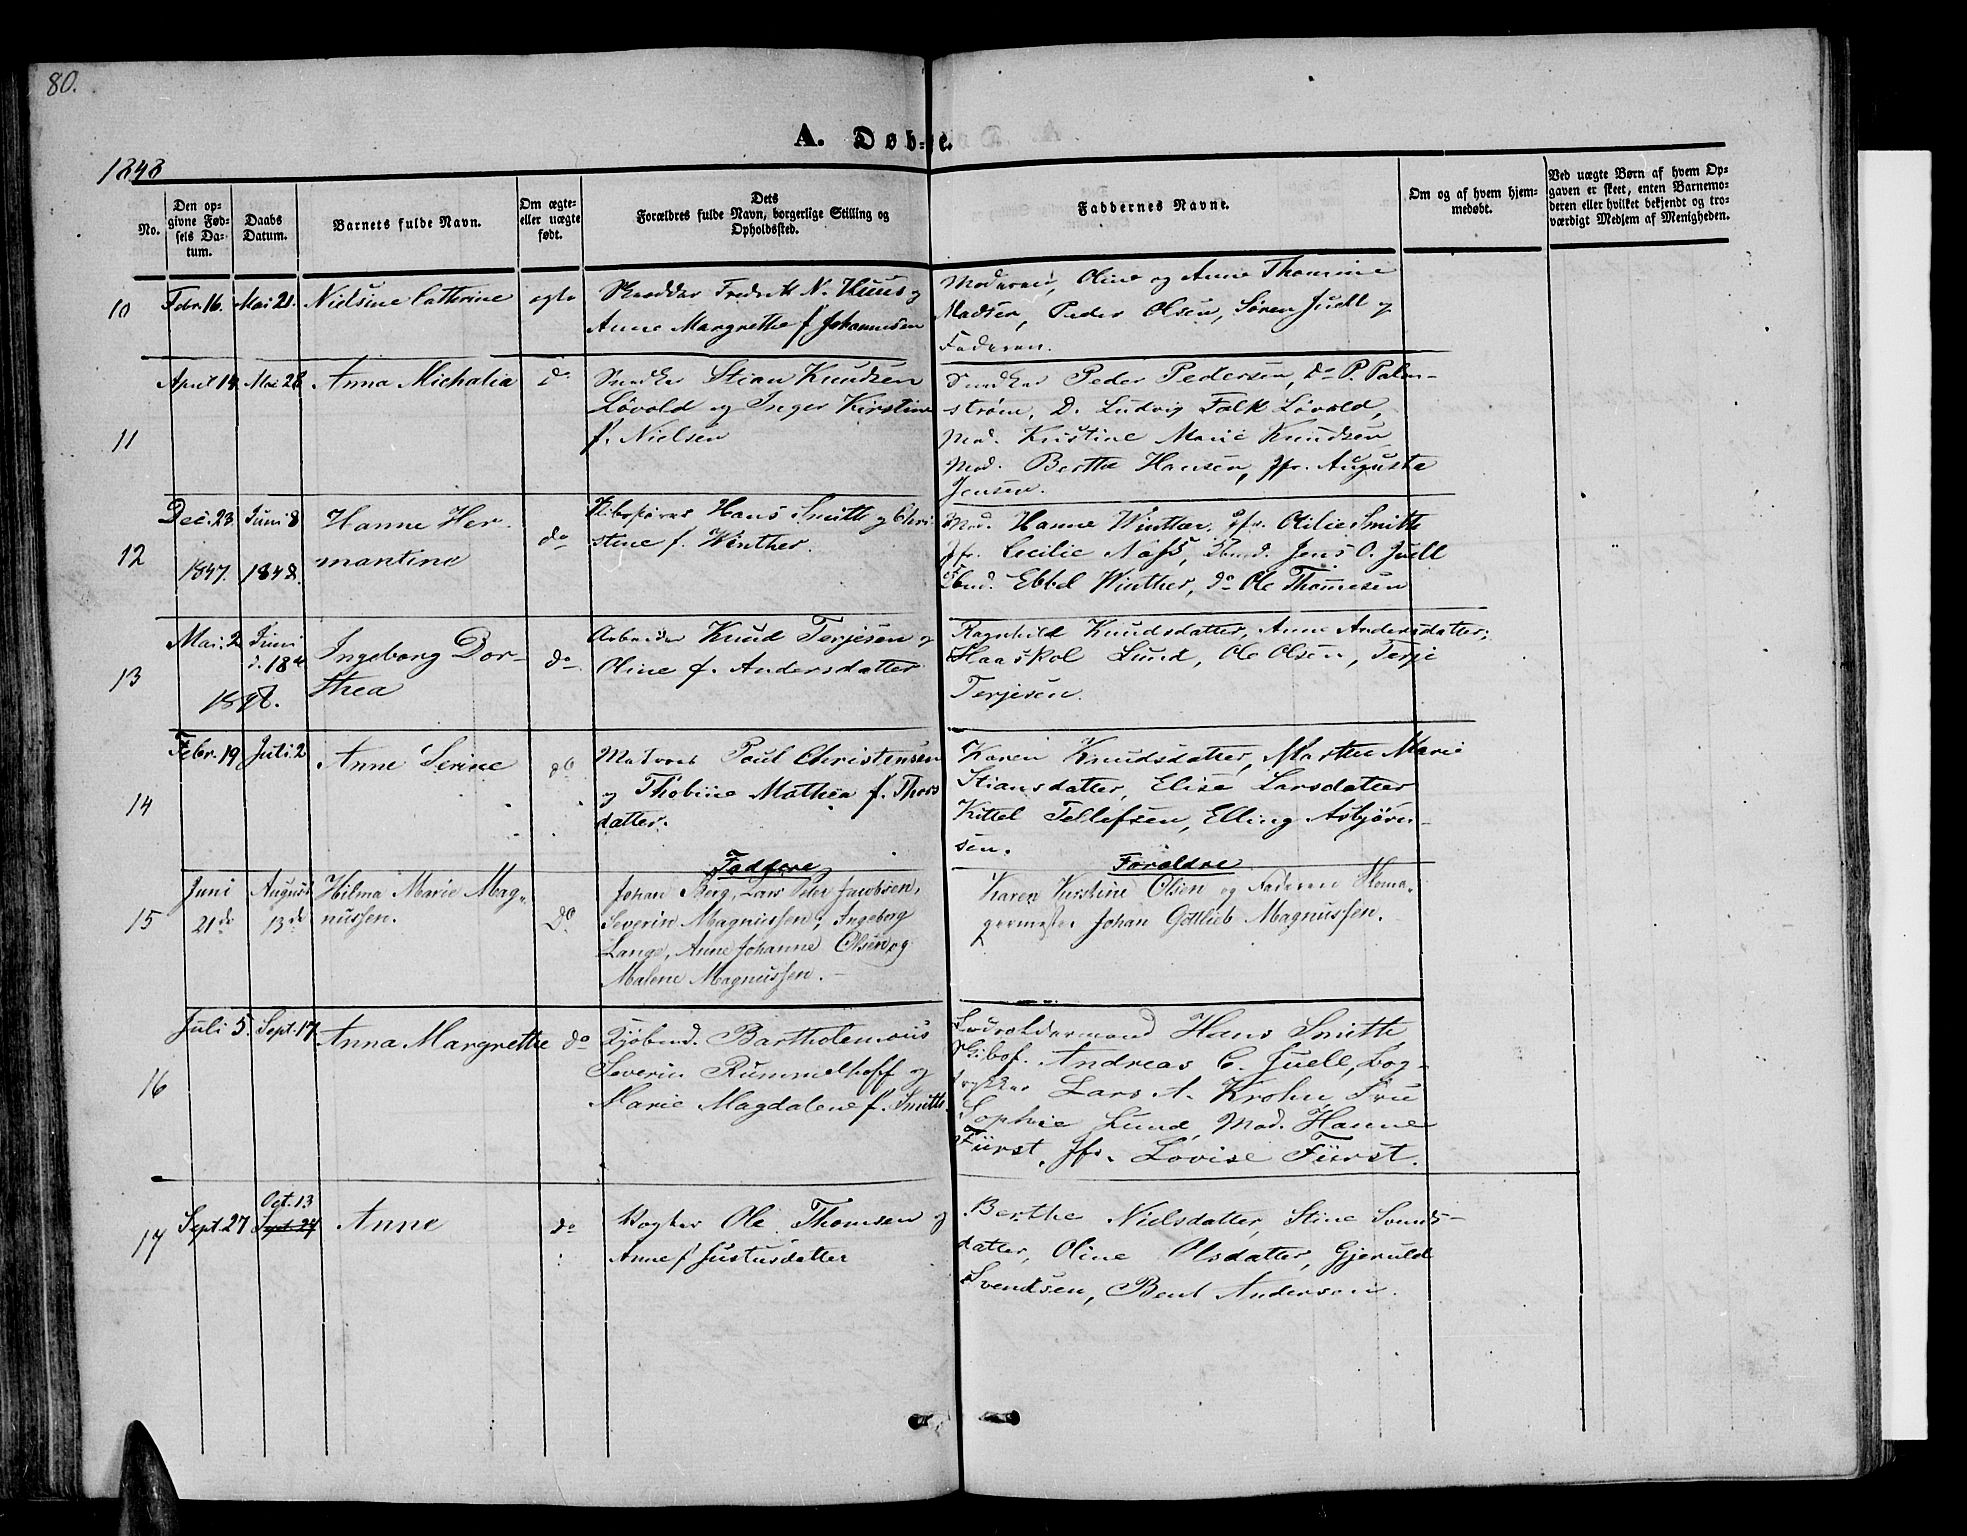 80.
A. Døb=te.
1848
No.
Den op-
givne Fød-
sels Da-
tum.
Daabs
Datum.
Barnets fulde Navn.
Om ægte
eller uægte
født.
Dets
Forældres fulde Navn, borgerlige Stilling og
Opholdssted.
Faddernes Navne.
Om og af hvem hjem-
medøbt.
Ved uægte Børn af hvem Op-
gaven er skeet, enten Barnemo-
deren eller hvilket bekjendt og tro-
værdigt Medlem af Menigheden.
10
Febr. 16.
Mai 21.
Nielsine Cathrine
ægte
Skrædder Fredrik N. Huus og
Anne Margrethe f Johannesen
Moderen, Oline og Anne Thomine
Madsen, Peder Olsen, Søren Juell og
Faderen.
11
April 14.
Mai 28
Anna Michalia
do
Snedker Stian Knudsen
Løvold og Inger Kirstine
f. Nielsen
Snedker Peder Pedersen, Do P. Palm-
strøm, D. Ludvig Falk Løvold,
Mad. Kristine Marie Knudsen
Mad. Berthe Hansen, Jfr. Augusta
Jensen.
12
Dec. 23
1847.
Juni 8
1848.
Hanne Her-
mantine
do
Skibsfører Hans Smith og Chri-
stine f. Winther.
Mad. Hanne Winther, Jfr. Otilie Smith
Jfr. Cecilie Næss, Jens O. Juell
Ebbel Winther, do Ole Thommesen
13
Mai. 2
Juni
d. 18de
1848.
Ingeborg Dor-
thea
do
Arbeider Knud Terjesen og
Oline f. Andersdatter
Ragnhild Knudsdatter, Anne Andersdatter,
Haaskol Lund, Ole Olsen, Terje
Terjesen.
14
Febr. 19
Juli 2
Anne Serine
do
Matros Poul Christensen
og Thobine Mathea f. Thors
datter.
Karen Knudsdatter, Marthe Marie
Stiansdatter, Elise Larsdatter
Kittel Tellefsen, Elling Asbjørn-
sen.
15
Juni
21de
August
13de
Hilma Marie Mag-
nussen.
Do
Faddere
Johan Berg, Lars Peter Jacobsen,
Severin Magnussen, Ingeborg
Lange, Anne Johanne Olsen og
Malene Magnussen.
Forældre
Karen Kirstine Olsen og Faderen Skoma-
germester Johan Gottlieb Magnussen.
16
Juli 5.
Sept. 17.
Anna Margrethe
do
Kjøbmd. Bartholomæus
Severin Rummelhoff og
Marie Magdalene f. Smith.
Hans Smith
Skibsf. Andreas C. Juell, Bog-
trykker Lars A. Krohn, Fru
Sophie Lund, Mad. Hanne
Fürst, Jfr. Lovise Fürst.
17
Sept. 27
Oct. 13
Sept. 27
Anne
do
Vægter Ole Thomsen og
Anne f Justusdatter
Berthe Nielsdatter, Stine Svends-
datter, Oline Olsdatter, Gjeruld
Svendsen, Bent Andersen.